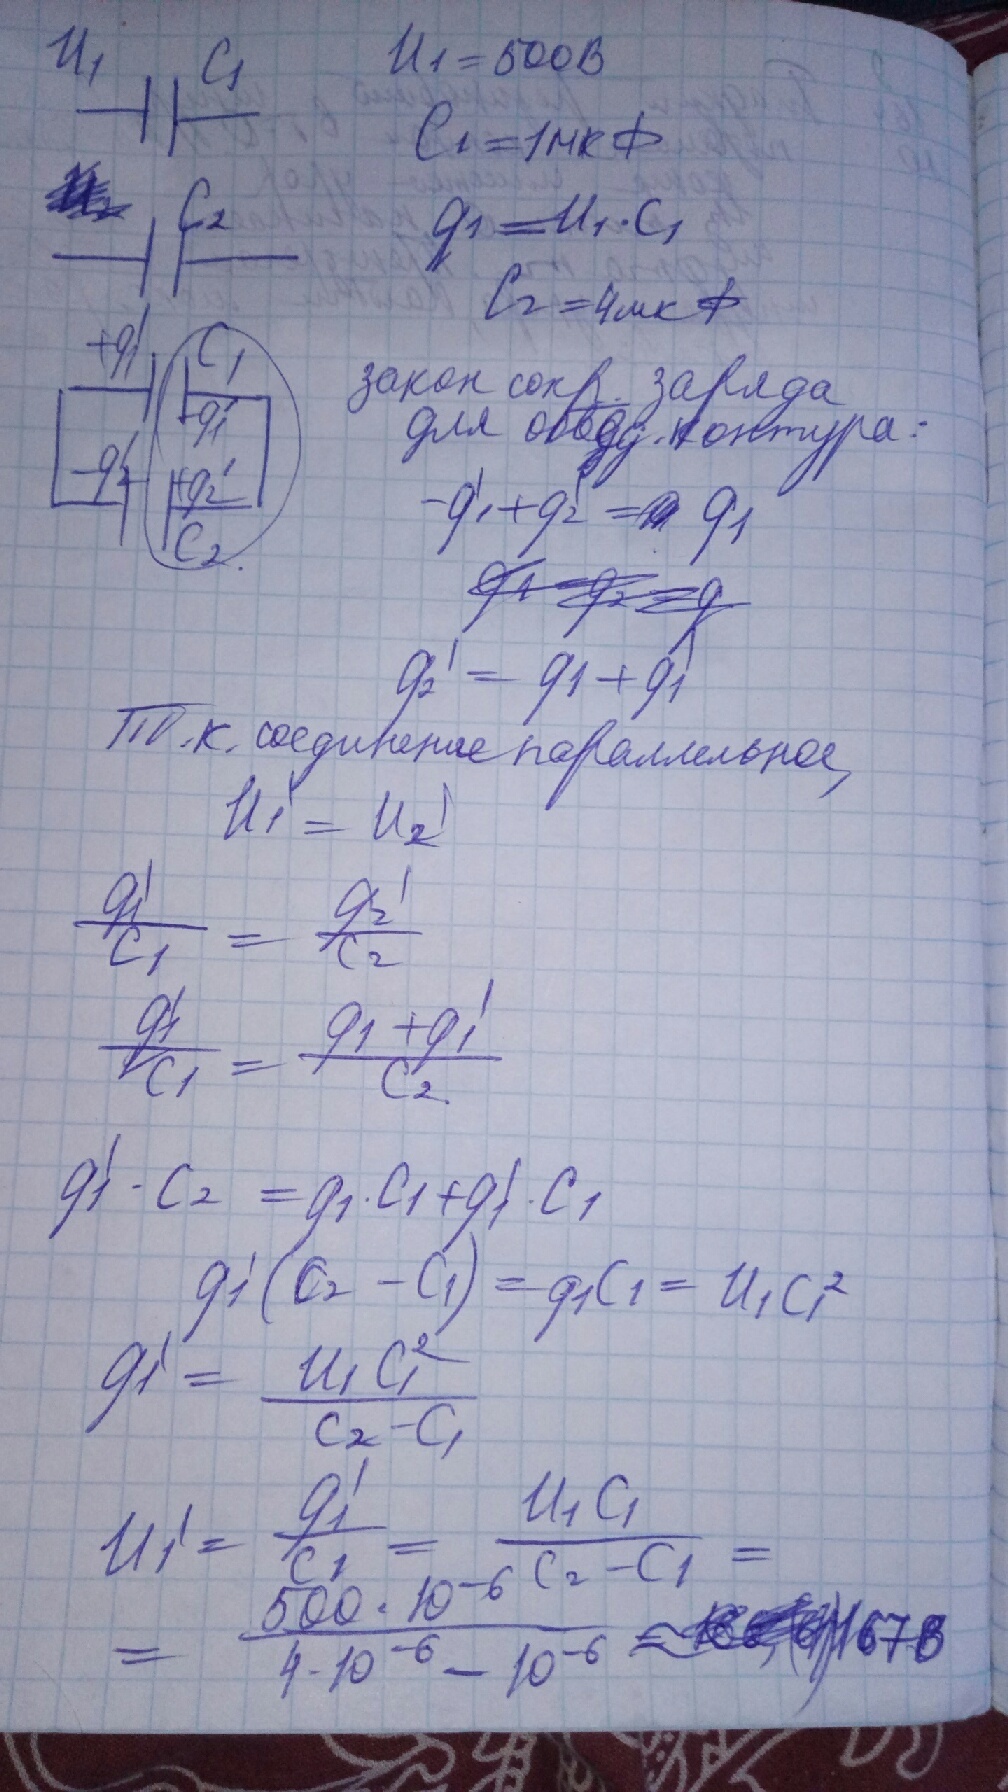 U₁ C₁ U₁ = 500В
C₁ = 1мкФ
C₂ q₁ = U₁·C₁
C₂ = 4мкФ
+q₁' C₁
закон сохр. заряда
-q₁' для обвед. контура:
-q₂' +q₂' -q₁' + q₂' = q₁
C₂.
q₁ = q₂ = q
q₂' = q₁ + q₁'
Т.к. соединение параллельное,
U₁' = U₂'
q₁'/C₁ = q₂'/C₂
q₁'/C₁ = (q₁ + q₁')/C₂.
q₁'·C₂ = q₁·C₁ + q₁'·C₁
q₁'(C₂ - C₁) = q₁C₁ = U₁C₁²
q₁' = U₁C₁²/(C₂ - C₁)
U₁' = q₁'/C₁ = U₁C₁/(C₂ - C₁) =
= 500·10⁻⁶/(4·10⁻⁶ - 10⁻⁶) = 167В